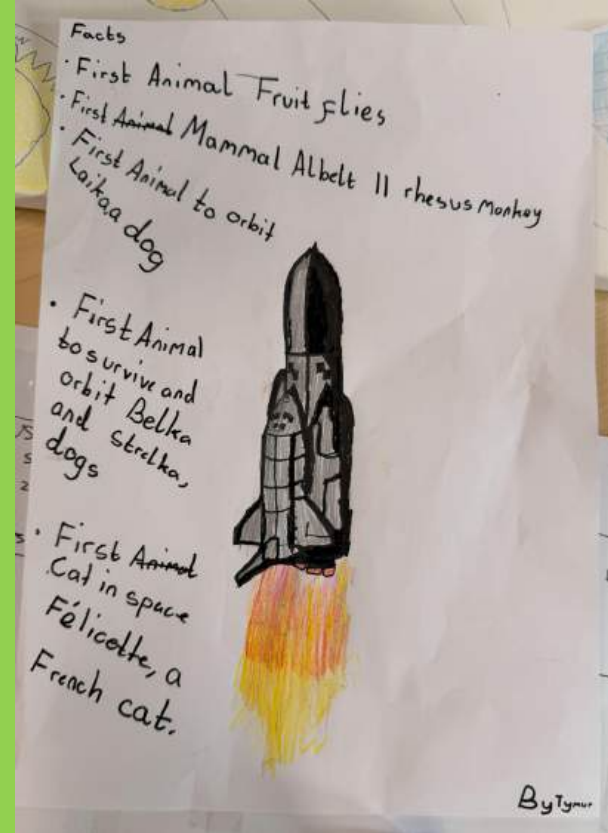 Facts
· First Animal Fruit flies
· First Animal Mammal Albelt II rhesus Monkey
· First Animal to orbit
Laika, a dog
· First Animal
to survive and
orbit Belka
and Strelka,
dogs
· First Animal
Cat in space
Félicette, a
French cat.
By Tymur